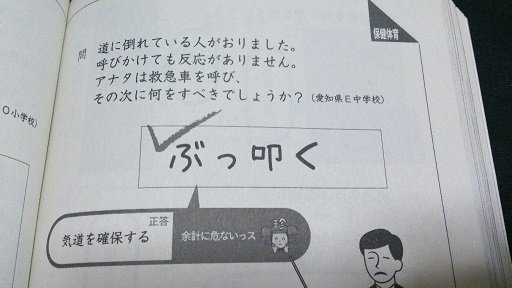 保健体育
問 道に倒れている人がおりました。
呼びかけても反応がありません。
アナタは救急車を呼び、
その次に何をすべきでしょうか？（愛知県E中学校）
○小学校）
ぶっ叩く
正答
気道を確保する
余計に危ないっス
珍